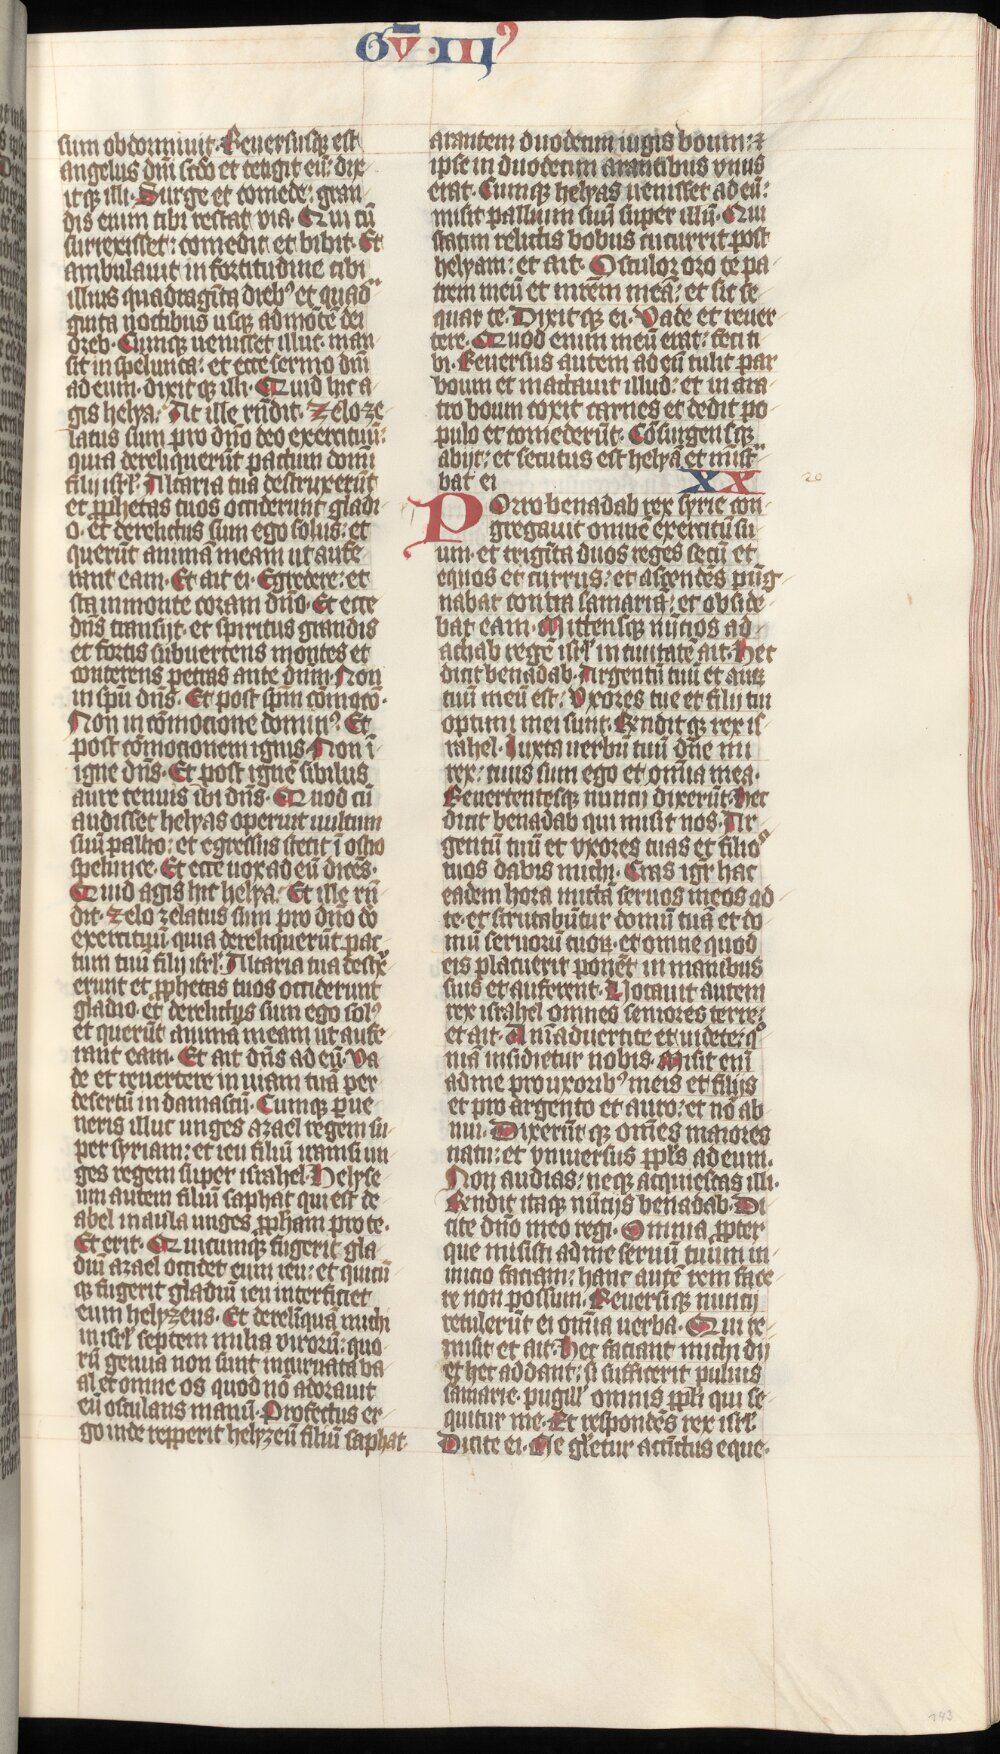 GV̄ · III⁹
sum obdormiuit. Reuersusq̃ est
angelus dñi scďo et tetigit eū: dix
itq̃ illi. Surge et comede: gran
dis enim tibi restat via. Qui cū
surrexisset: comedit et bibit. Et
ambulauit in fortitudine cibi
illius quadragīta dieb⁹ et quad
ginta noctibus usq̃ ad mōtē dei
oreb. Cumq̃ uenisset illuc. man
sit in spelunca: et ecce sermo dñi
ad eum. dixit q̃ illi. Quid hic a
gis helya. At ille rñdit. Zelo ze
latus sum pro dño deo exercituū:
quia dereliquerūt pactum domī
filij isrl̄. Altaria tua destruxerūt
et ꝓphetas tuos occiderunt gladi
o. et derelictus sum ego solus: et
querūt animā meam ut aufe
rant eam. Et ait ei. Egredere: et
sta in monte coram dño. Et ecce
dñs transijt. et spiritus grandis
et fortis subuertens montes et
conterens petras ante dñm. Non
in spū dñs. Et post spm̄ cōmocō.
Non in cōmocione domin⁹. Et
post cōmocionem ignis. Non ī
igne dñs. Et post ignē sibilus
aure tenuis ibi dñs. Quod cū
audisset helyas operuit uultum
suū pallio: et egressus stetit ī ostio
spelunce. Et ecce uox ad eū dicēs.
Quid agis hic helya. Et ille rñ
dit. Zelo zelatus sum pro dño do
exercituū quia dereliquerūt pac
tum tuū filij isrl̄. Altaria tua destx̄
erunt et ꝓphetas tuos occiderunt
gladio. et derelictus sum ego sol⁹
et querūt animā meam ut aufe
rant eam. Et ait dñs ad eū. Va
de et reuertere in uiam tuā per
desertū in damascū. Cumq̃ ꝑue
neris illuc unges azael regem su
per syriam: et ieu filiū namsi un
ges regem super israhel. Helyse
um autem filiū saphat qui est de
abel in aula unges ꝓpham pro te.
Et erit. Quicumq̃ fugerit gla
diū azael occidet eum ieu: et quicū
q̃ fugerit gladiū ieu interficiet
eum helyzeus. Et derelīquā michi
in isrl̄ septem milia virorū: quo
rū genua non sunt incuruata ba
al et omne os quod nō adorauit
eū osculans manū. Profectus er
go inde repperit helyzeū filiū saphat
arantem duodecim iugis boum: ⁊
ipse in duodecim arantibus vnus
erat. Cumq̃ helyas uenisset ad eū:
misit pallium suū super illū. Qui
statim relictis bobus cucurrit post
helyam: et ait. Osculor oro te pa
trem meū et mrēm meā: et sic se
quar te. Dixit q̃ ei. Vade et reuer
tere. Quod enim meū erat: feci ti
bi. Reuersus autem ad eū tulit par
boum et mactauit illud: et in ara
tro boum coxit carnes et dedit po
pulo et comederūt. Cōsurgensq̃
abijt: et secutus est helyā et mīst
bat ei XX 20
POrro benadab rex syrie con
gregauit omnē exercitū su
um. et trigīta duos reges secū et
equos et currus: et ascendēs pūg
nabat contra samariā: et obside
bat eam. Mittensq̃ nūcios ad
achab regē isrl̄ in ciuitatē ait. Hec
dicit benadab. Argentū tuū et aurū
tuū meū est. Vxores tue et filij tui
optimi mei sunt. Rñdit q̃ rex is
rahel. Iuxta uerbū tuū dñe mi
rex: tuus sum ego et omīa mea.
Reuertentesq̃ nuncij dixerūt. Hec
dicit benadab qui misit nos. Ar
gentū tuū et vxores tuas et filio⁹
tuos dabis michi. Cras igr̄ hac
eadem hora mittā seruos meos ad
te. et scrutabūtur domū tuā et do
mū seruorū tuoꝝ. et omne quod
eis placuerit ponēt in manibus
suis et auferent. Uocauit autem
rex israhel omnes seniores terre:
et ait. Animaduertite et uidete: qͦ
niā insidietur nobis. Misit enī
ad me pro uxorib⁹ meis et filijs
et pro argento et auro: et nō ab
nui. Dixerūt q̃ omēs maiores
natu: et vniuersus ppl̄s ad eum.
Non audias: neq̃ acquiescas illi.
Rñdit itaq̃ nūcijs benadab. Di
cite dño meo regi. Omnia ꝓpter
que misisti ad me seruū tuum in
inicio faciam: hanc autē rem face
re non possum. Reuersiq̃ nuncij
retulerūt ei omīa uerba. Qui re
misit et ait. Hec faciant michi dij
et hec addant: si suffecerit puluis
samarie. pugill̄ omnis ppl̄i qui se
quitur me. Et respondēs rex isrl̄.
Dicite ei. Ne gl̄etur accīctus eque.
143